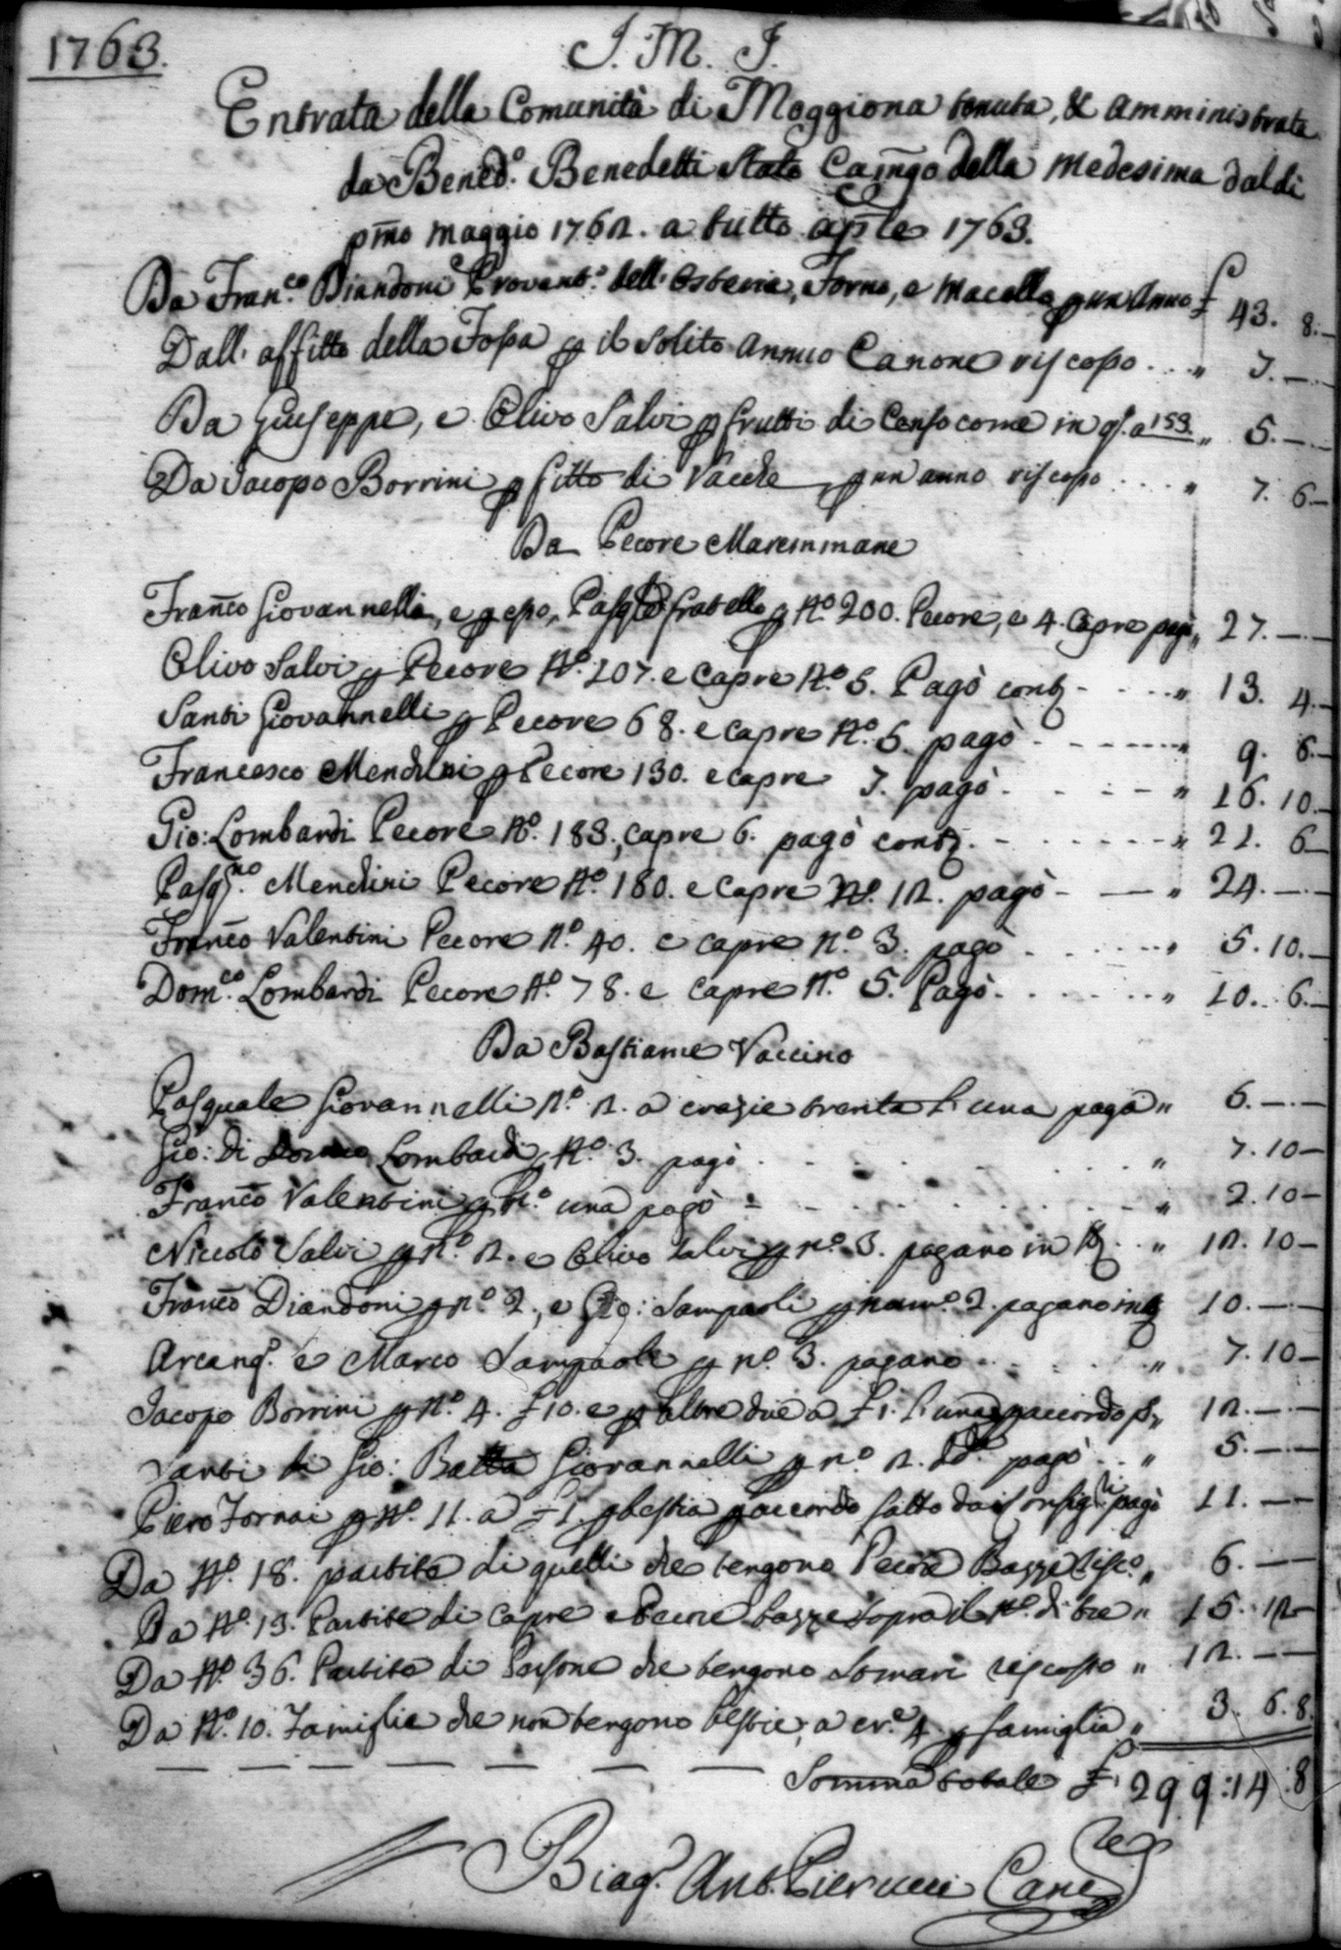 1763.
J. M. J.
Entrata della Comunità di Moggiona tenuta, & Amministrata
da Bened.º Benedetti Stato Cam̃go della medesima dal dì
pm̃o maggio 1762. a tutto ap̃le 1763.
Da Fran.co Diandoni Provent.º dell' Osteria, Forno, e Macello p un Anno £ 43. 8. —
Dall' affitto della Fossa p il solito annuo Canone riscosso . . . " 7. — —
Da Giuseppe, e Olivo Salvi p frutti di Censo come in q.º a 153 " 5. — —
Da Jacopo Borrini p fitto di Vacche p un anno riscosso . . . . " 7. 6 —
Da Pecore Maremmane
Fran̄co Giovannelli, e p esso, Pasq̃le fratello p Nº 200. Pecore, e 4. Capre pagò " 27. — —
Olivo Salvi p Pecore Nº 107. e Capre Nº 5. Pagò cont. - - - - " 13. 4. —
Santi Giovannelli p Pecore 68. e capre Nº 5. pagò - - - - - - " 9. 6. —
Francesco Mendini p Pecore 130. e capre 7. pagò . - - - - " 16. 10. —
Gio: Lombardi Pecore Nº 183, capre 6. pagò cont. - - - - - - " 21. 6 —
Pasq.no Mendini Pecore Nº 180. e Capre Nº 12. pagò - — - " 24. — —
Fran̄co Valentini Pecore Nº 40. e capre Nº 3. pagò . . . . . . " 5. 10. —
Dom.co Lombardi Pecore Nº 78. e capre Nº 5. Pagò . . . . . . " 10. 6. —
Da Bastiame Vaccino
Pasquale Giovannelli Nº 2. a crazie trenta l' una pagò " 5. — —
Gio: di Lombardi p Nº 3. pagò . . . . . . . " 7. 10 —
Fran̄co Valentini p Nº una pagò - . . . . . . . " 2. 10 —
Niccolò Salvi p nº 2. e Olivo Salvi p nº 3. pagano in tt.º . . " 12. 10 —
Fran̄co Diandoni p nº 2, e Gio: Sampaoli p num.º 2. pagano in tt.º 10. — —
Arcang.º e Marco Sampaoli p nº 3. pagano . . . . . . " 7. 10 —
Jacopo Borrini p Nº 4. £ 10. e p altre due a £ 1. l' una p accordo " 12. — —
Santi di Gio: Batta Giovannelli p nº 2. dd.e pagò . . " 5. — —
Piero Fornai p Nº 11. a £ 1. p bestia p accordo fatto dai Consigl.ri pagò 11. — —
Da Nº 18. partite di quelli che tengono Pecore Bazze risc.º " 6. — —
Da Nº 13. Partite di Capre e Pecore bazze sopra il Nº di tre " 15. 12 —
Da Nº 36. Partite di Persone che tengono Somari riscosso " 12. — —
Da Nº 10. Famiglie che non tengono bestie, a cr.e 4. p famiglia " 3. 6. 8.
Somma totale £ 299: 14: 8
Biag.º Ant.º Pierucci Canc.re